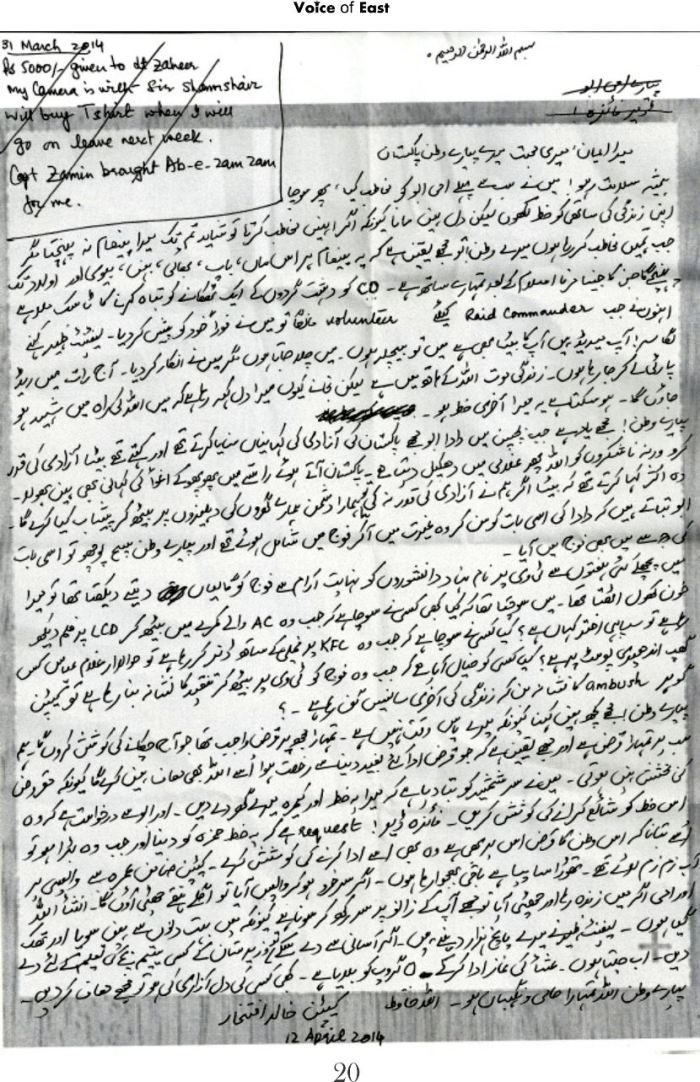 Voice of East
31 March 2014
Rs 5000/- given to Lt Zaheer
My Camera is with Sir Shamshair
Will buy T shirt when I will
go on leave next week.
Capt Zamin brought Ab-e-zam zam
for me.
بسم اللہ الرحمٰن الرحیم
پیارے امی ابو
ڈئیر فائزہ!
میرا ایمان، میری محبت میرے پیارے وطن پاکستان
ہمیشہ سلامت رہو! میں نے سب سے پہلے امی ابو کو مخاطب کیا، پھر سوچا
اپنی زندگی کی ساتھی کو خط لکھوں لیکن دل نہیں مانا کیونکہ اگر انہیں مخاطب کرتا تو شاید تم تک میرا پیغام نہ پہنچتا مگر
جب تمہیں مخاطب کر رہا ہوں میرے وطن! تو مجھے یقین ہے کہ یہ پیغام ہر اس ماں، باپ، بھائی، بہن، بیوی اور اولاد تک
پہنچے گا جن کا جینا مرنا اسلام کے بعد تمہارے ساتھ ہے۔ CO کو دہشت گردوں کے ایک ٹھکانے کو تباہ کرنے کا ٹاسک ملا ہے
انہوں نے جب Raid Commander کیلئے volunteer مانگا تو میں نے فوراً خود کو پیش کر دیا۔ لیفٹیننٹ ظہیر کہنے
لگا سر! آپ میریڈ ہیں آپ کا بیٹا بھی ہے میں تو بیچلر ہوں۔ میں چلا جاتا ہوں مگر میں نے انکار کر دیا۔ آج رات میں ریڈ
پارٹی لے کر جا رہا ہوں۔ زندگی موت اللہ کے ہاتھ میں ہے لیکن نجانے کیوں میرا دل کہہ رہا ہے کہ میں اللہ کی راہ میں شہید ہو
جاؤں گا۔ ہو سکتا ہے یہ میرا آخری خط ہو۔
پیارے وطن! مجھے یاد ہے جب بچپن میں دادا ابو مجھے پاکستان کی آزادی کی کہانیاں سنایا کرتے تھے اور کہتے تھے بیٹا آزادی کی قدر
کرو ورنہ ناشکروں کو اللہ پھر غلامی میں دھکیل دیتا ہے۔ پاکستان آتے ہوئے راستے میں پھوپھو کے اغوا کی کہانی بھی نہیں بھولا۔
وہ اکثر کہا کرتے تھے کہ بیٹا اگر تم نے آزادی کی قدر نہ کی تو تمہارا دشمن ہمارے گھروں کی دہلیزوں پر بیٹھ کر پیشاب کیا کرے گا۔
ابو بتاتے ہیں کہ دادا کی اسی بات کو سن کر وہ غیرت میں آ کر فوج میں شامل ہوئے تھے اور پیارے وطن سچ پوچھو تو اسی بات
کی وجہ سے میں بھی فوج میں آیا۔
میں پچھلے کئی ہفتوں سے ٹی وی پر نام نہاد دانشوروں کو نہایت آرام سے فوج کو گالیاں دیتے دیکھتا تھا تو میرا
خون کھول اٹھتا تھا۔ میں سوچتا تھا کہ کیا کبھی کسی نے سوچا ہے کہ جب وہ AC والے کمرے میں بیٹھ کر LCD پر فلم دیکھ
رہا ہے تو سپاہی اختر کہاں ہے؟ کیا کسی نے سوچا ہے کہ جب وہ KFC پر فیملی کے ساتھ ڈنر کر رہا ہے تو حوالدار غلام عباس کس
گھپ اندھیری پوسٹ پہ ہے؟ کیا کسی کو خیال آیا ہے کہ جب وہ فوج کو ٹی وی پر بیٹھ کر تنقید کا نشانہ بنا رہا ہے تو کیپٹن
گوہر ambush کا نشانہ بن کر زندگی کی آخری سانسیں گن رہا ہے۔؟
پیارے وطن! مجھے کچھ نہیں کہنا کیونکہ میرے پاس وقت نہیں ہے۔ تمہارا مجھ پر قرض واجب تھا جو آج چکانے کی کوشش کروں گا۔ ہم
سب پر تمہارا قرض ہے اور مجھے یقین ہے کہ جو قرض ادا کئے بغیر دنیا سے رخصت ہوا اُسے اللہ بھی معاف نہیں کرے گا کیونکہ حقوق
کی بخشش نہیں ہوتی۔ میں نے سر شمشیر کو بتا دیا ہے کہ میرا یہ خط اور کیمرہ میرے گھر دے دیں۔ اور ابو سے درخواست ہے کہ وہ
اس خط کو شائع کرانے کی کوشش کریں۔ فائزہ ڈئیر! request ہے کہ یہ خط حمزہ کو دینا اور جب وہ بڑا ہو تو
اُسے بتانا کہ اس وطن کا قرض اس پر بھی ہے وہ بھی اسے ادا کرنے کی کوشش کرے۔ کیپٹن ضامن عمرہ سے واپسی پر
آب زم زم لائے تھے۔ تھوڑا سا پیا ہے باقی بھجوا رہا ہوں۔ اگر سرخرو ہو کر واپس آیا تو اگلے ہفتے چھٹی آؤں گا۔ انشاء اللہ
اور امی اگر میں زندہ رہا اور چھٹی آیا تو مجھے آپ کے زانو پر سر رکھ کر سونا ہے کیونکہ میں بہت دنوں سے نہیں سویا اور تھک
گیا ہوں۔ لیفٹیننٹ ظہیر نے میرے پانچ ہزار دینے ہیں۔ اگر آسانی سے دے سکے تو وزیرستان کے کسی یتیم بچے کی تعلیم کے لئے دے
دیں۔ اب چلتا ہوں۔ عشاء کی نماز ادا کر کے O گروپ کو بلایا ہے۔ کبھی کسی کی دل آزاری کی ہو تو مجھے معاف کر دیں۔
پیارے وطن اللہ تمہارا حامی و نگہبان ہو۔ اللہ حافظ
کیپٹن خالد افتخار
12 Aprile 2014
20